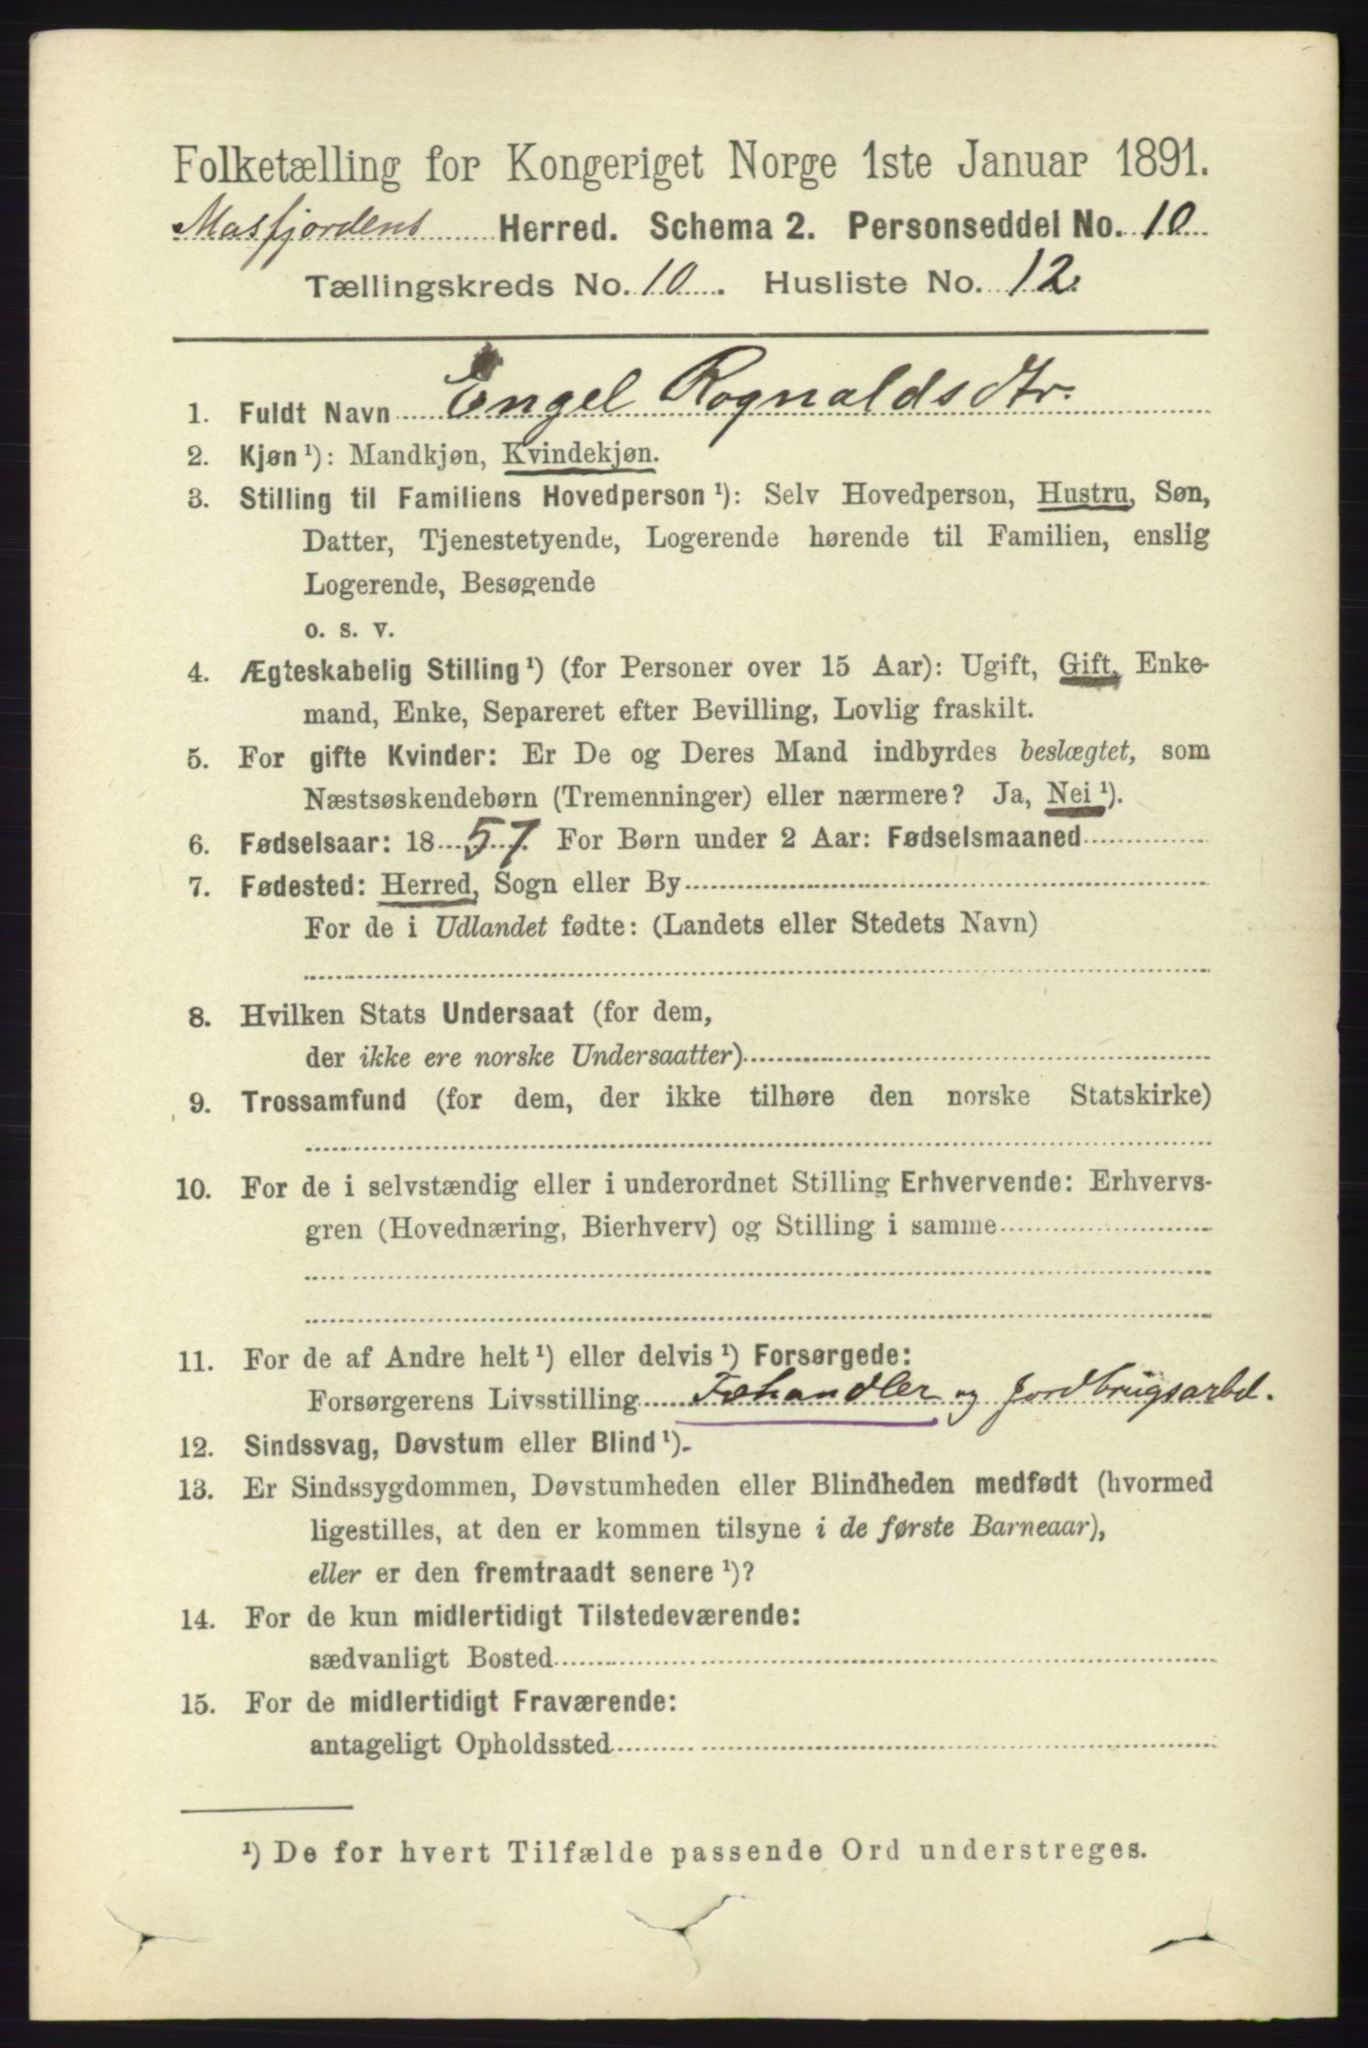 Folketælling for Kongeriget Norge 1ste Januar 1891.
Masfjordens Herred. Schema 2. Personseddel No. 10
Tællingskreds No. 10. Husliste No. 12.
1. Fuldt Navn Engel Rognaldsdtr.
2. Kjøn ¹): Mandkjøn, Kvindekjøn.
3. Stilling til Familiens Hovedperson ¹): Selv Hovedperson, Hustru, Søn,
Datter, Tjenestetyende, Logerende hørende til Familien, enslig
Logerende, Besøgende
o. s. v.
4. Ægteskabelig Stilling ¹) (for Personer over 15 Aar): Ugift, Gift, Enke-
mand, Enke, Separeret efter Bevilling, Lovlig fraskilt.
5. For gifte Kvinder: Er De og Deres Mand indbyrdes beslægtet, som
Næstsøskendebørn (Tremenninger) eller nærmere? Ja, Nei ¹).
6. Fødselsaar: 1857. For Børn under 2 Aar: Fødselsmaaned
7. Fødested: Herred, Sogn eller By
For de i Udlandet fødte: (Landets eller Stedets Navn)
8. Hvilken Stats Undersaat (for dem,
der ikke ere norske Undersaatter)
9. Trossamfund (for dem, der ikke tilhøre den norske Statskirke)
10. For de i selvstændig eller i underordnet Stilling Erhvervende: Erhvervs-
gren (Hovednæring, Bierhverv) og Stilling i samme
11. For de af Andre helt ¹) eller delvis ¹) Forsørgede:
Forsørgerens Livsstilling Fæhandler og Jordbrugsarbd.
12. Sindssvag, Døvstum eller Blind ¹).
13. Er Sindssygdommen, Døvstumheden eller Blindheden medfødt (hvormed
ligestilles, at den er kommen tilsyne i de første Barneaar),
eller er den fremtraadt senere ¹)?
14. For de kun midlertidigt Tilstedeværende:
sædvanligt Bosted
15. For de midlertidigt Fraværende:
antageligt Opholdssted
¹) De for hvert Tilfælde passende Ord understreges.